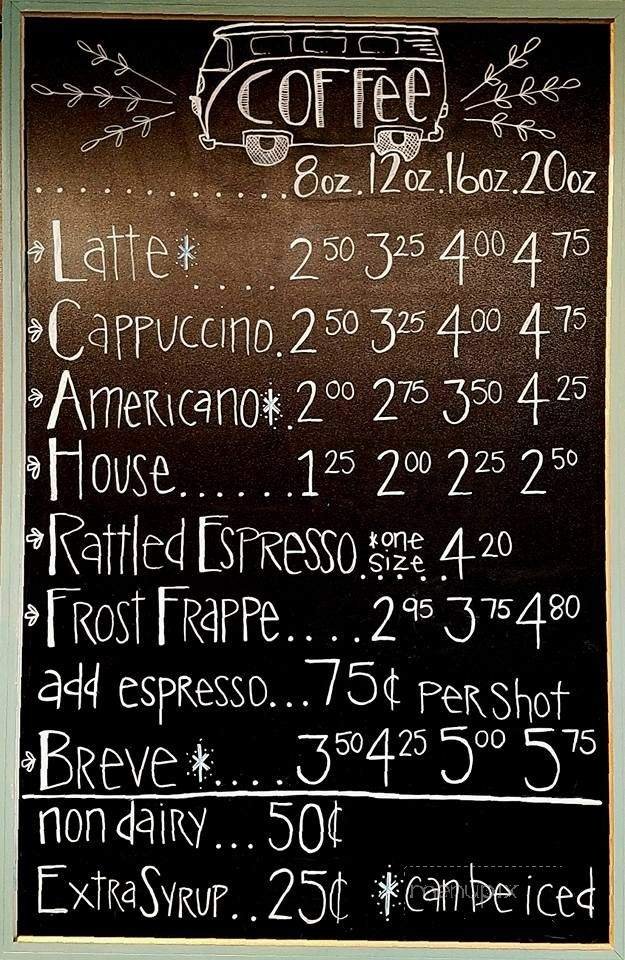 COFFee
. . . . . . . . . . . . . 8oz.12oz.16oz.20oz
Latte*. . . . 2 50 3 25 4 00 4 75
Cappuccino. 2 50 3 25 4 00 4 75
Americano*. 2 00 2 75 3 50 4 25
House...... 1 25 2 00 2 25 2 50
Rattled Espresso *one size ..... 4 20
Frost Frappe.... 2 95 3 75 4 80
add espresso...75¢ per shot
Breve *.... 3 50 4 25 5 00 5 75
non dairy...50¢
Extra Syrup..25¢ *can be iced